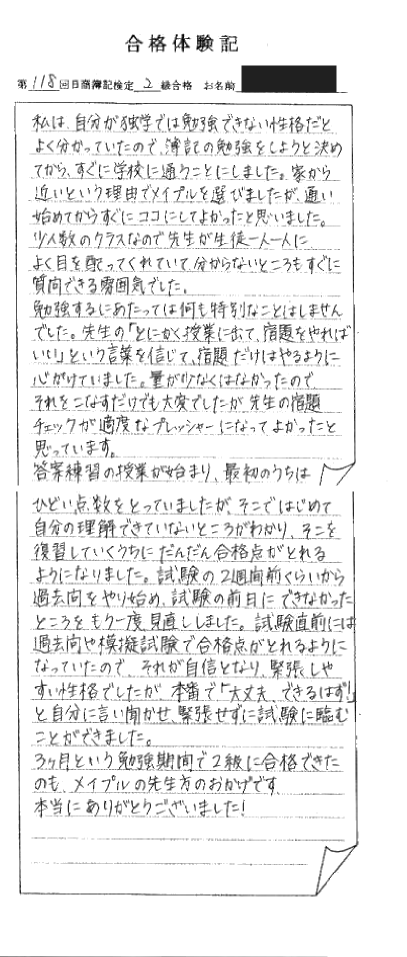 合格体験記
第118回日商簿記検定 2 級合格 お名前
私は、自分が独学では勉強できない性格だと
よく分かっていたので、簿記の勉強をしようと決め
てから、すぐに学校に通うことにしました。家から
近いという理由でメイプルを選びましたが、通い
始めてからすぐにココにしてよかったと思いました。
少人数のクラスなので先生が生徒一人一人に
よく目を配ってくれていて、分からないところもすぐに
質問できる雰囲気でした。
勉強するにあたっては何も特別なことはしません
でした。先生の「とにかく授業に出て、宿題をやれば
いい」という言葉を信じて、宿題だけはやるように
心がけていました。量が少なくはなかったので
それをこなすだけでも大変でしたが、先生の宿題
チェックが適度なプレッシャーになってよかったと
思っています。
答案練習の授業が始まり、最初のうちは
ひどい点数をとっていましたが、そこではじめて
自分の理解できていないところがわかり、そこを
復習していくうちにだんだん合格点がとれる
ようになりました。試験の2週間前くらいから
過去問をやり始め、試験の前日にできなかった
ところをもう一度見直ししました。試験直前には
過去問や模擬試験で合格点がとれるように
なっていたので、それが自信となり、緊張しや
すい性格でしたが、本番で「大丈夫、できるはず!」
と自分に言い聞かせ、緊張せずに試験に臨む
ことができました。
3ヶ月という勉強期間で2級に合格できた
のも、メイプルの先生方のおかげです。
本当にありがとうございました!